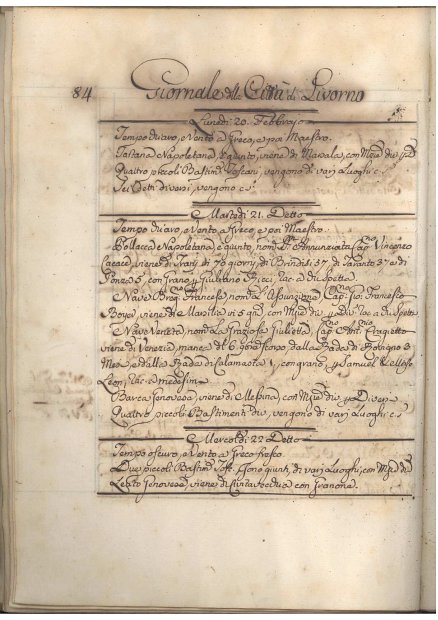 84 Giornale della Città di Livorno
Lunedì 20. Febbrajo
Tempo chiaro, e Vento a Greco, e poi Maestro.
Tartana Napoletana, è giunto, viene di Marsala, con Mzie div. p D.
Quattro piccoli Bastim. Toscani, vengono di varj Luoghi c.
Sei Detti diversi, vengono c. s.
Martedì 21. Detto
Tempo chiaro, e Vento a Greco e poi Maestro.
Pollacca Napoletana, è giunto, nom. SS. Annunziata, Cap.no Vincenzo
Cacace, viene di Trani di 78 giorni, di Brindisi 57 di Taranto 37 e di
Ponza 5, con Grano p Giuliano Ricci, rac. a di Spetta
Nave Brig. Francese, nom. L'Assunzione, Cap. Gio. Francesco
Boyer, viene di Marsilia in 5 gni, con Mzie div. p Div. rac. a chi Spetta
Nave Veneta, nom. La Graziosa Giulietta, Cap. Ant.nio
viene di Venezia, manca dal 6 scorso, dalla Rada di Rovigno 3
Mesi, e dalla Rada di Calamasta 1, con grano, p Samuel
Leon, rac. a medesim.
Barca Genovese, viene di Messina, con Mzie div. p D. ver.
Quattro piccoli Bastimenti div., vengono di varj Luoghi c. s.
Mercoldì 22 Detto
Tempo oscuro, e Vento a Greco fresco.
Due piccoli Bastim. Tosc. sono giunti, di varj Luoghi, con Mzie div.
Leuto Genovese, viene di Civitavecchia con